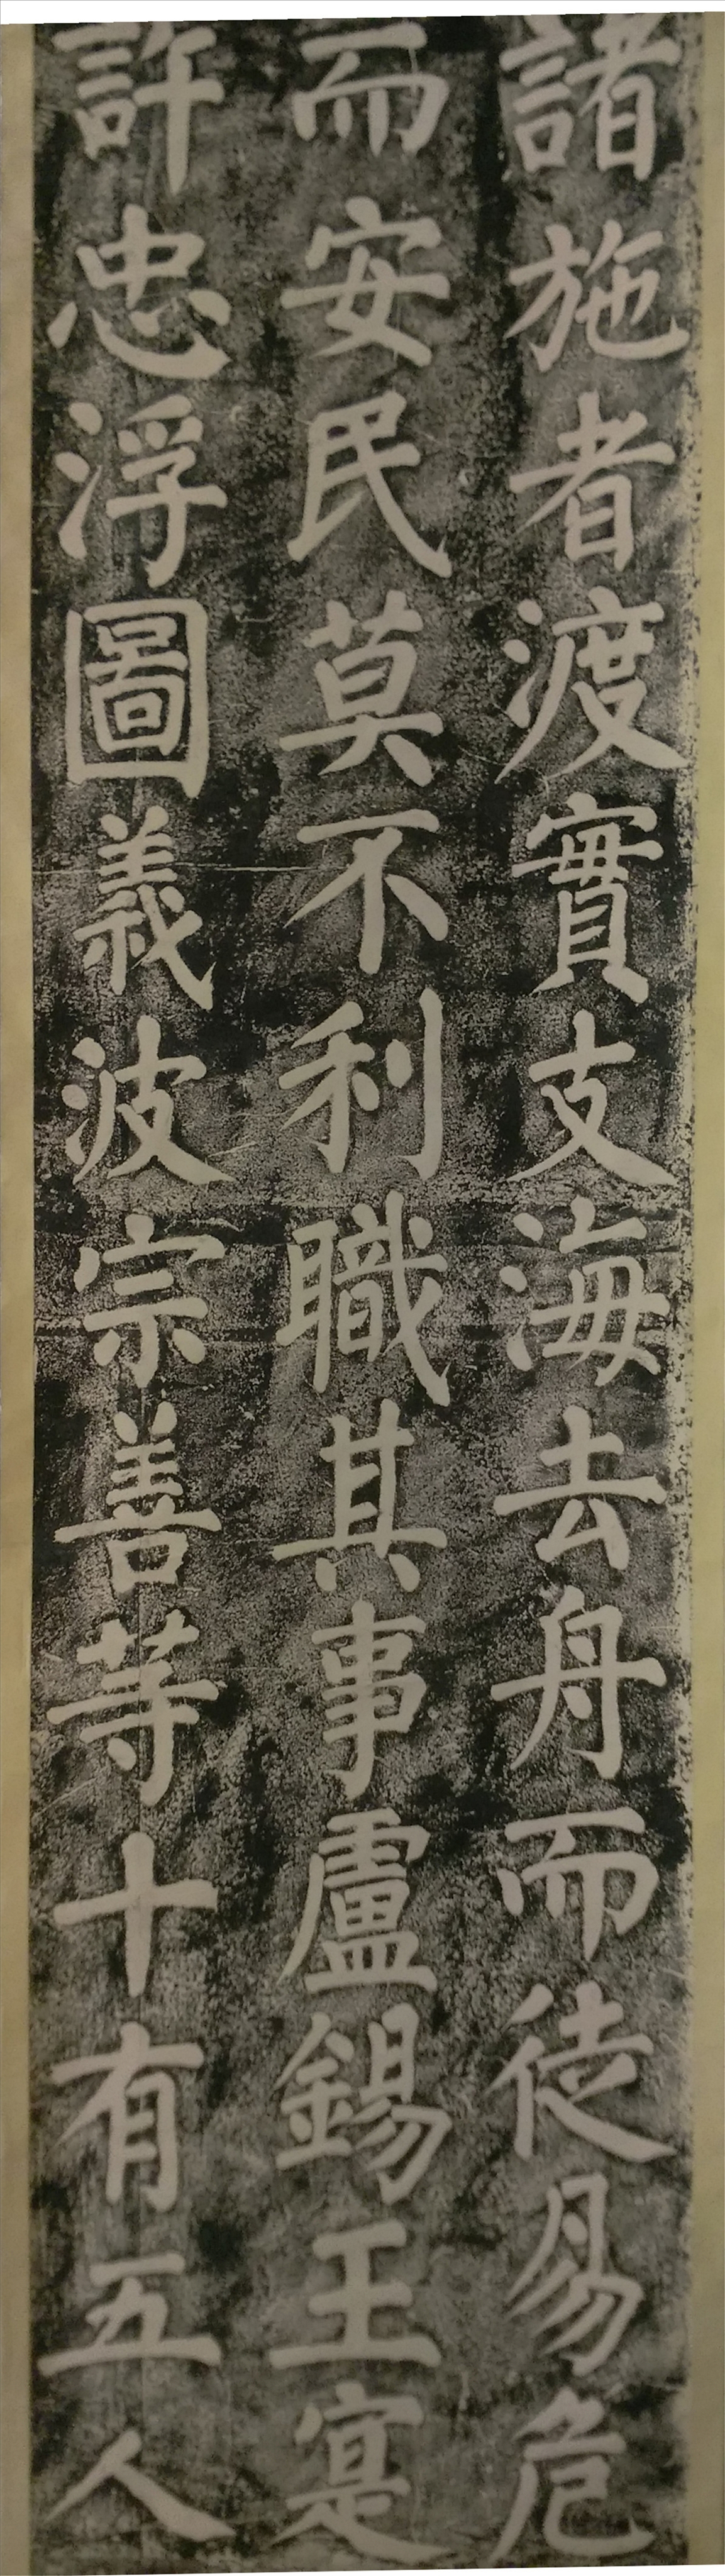 諸施者渡實支海去舟而徒易危
而安民莫不利職其事盧錫王寔
許忠浮圖義波宗善等十有五人